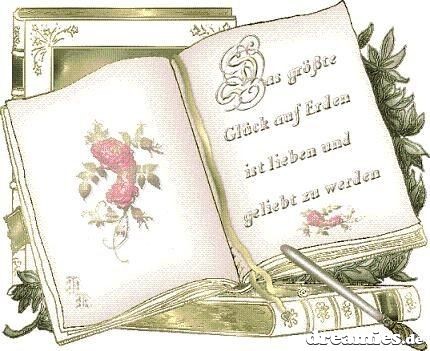 Das größte
Glück auf Erden
ist lieben und
geliebt zu werden
dreamies.de